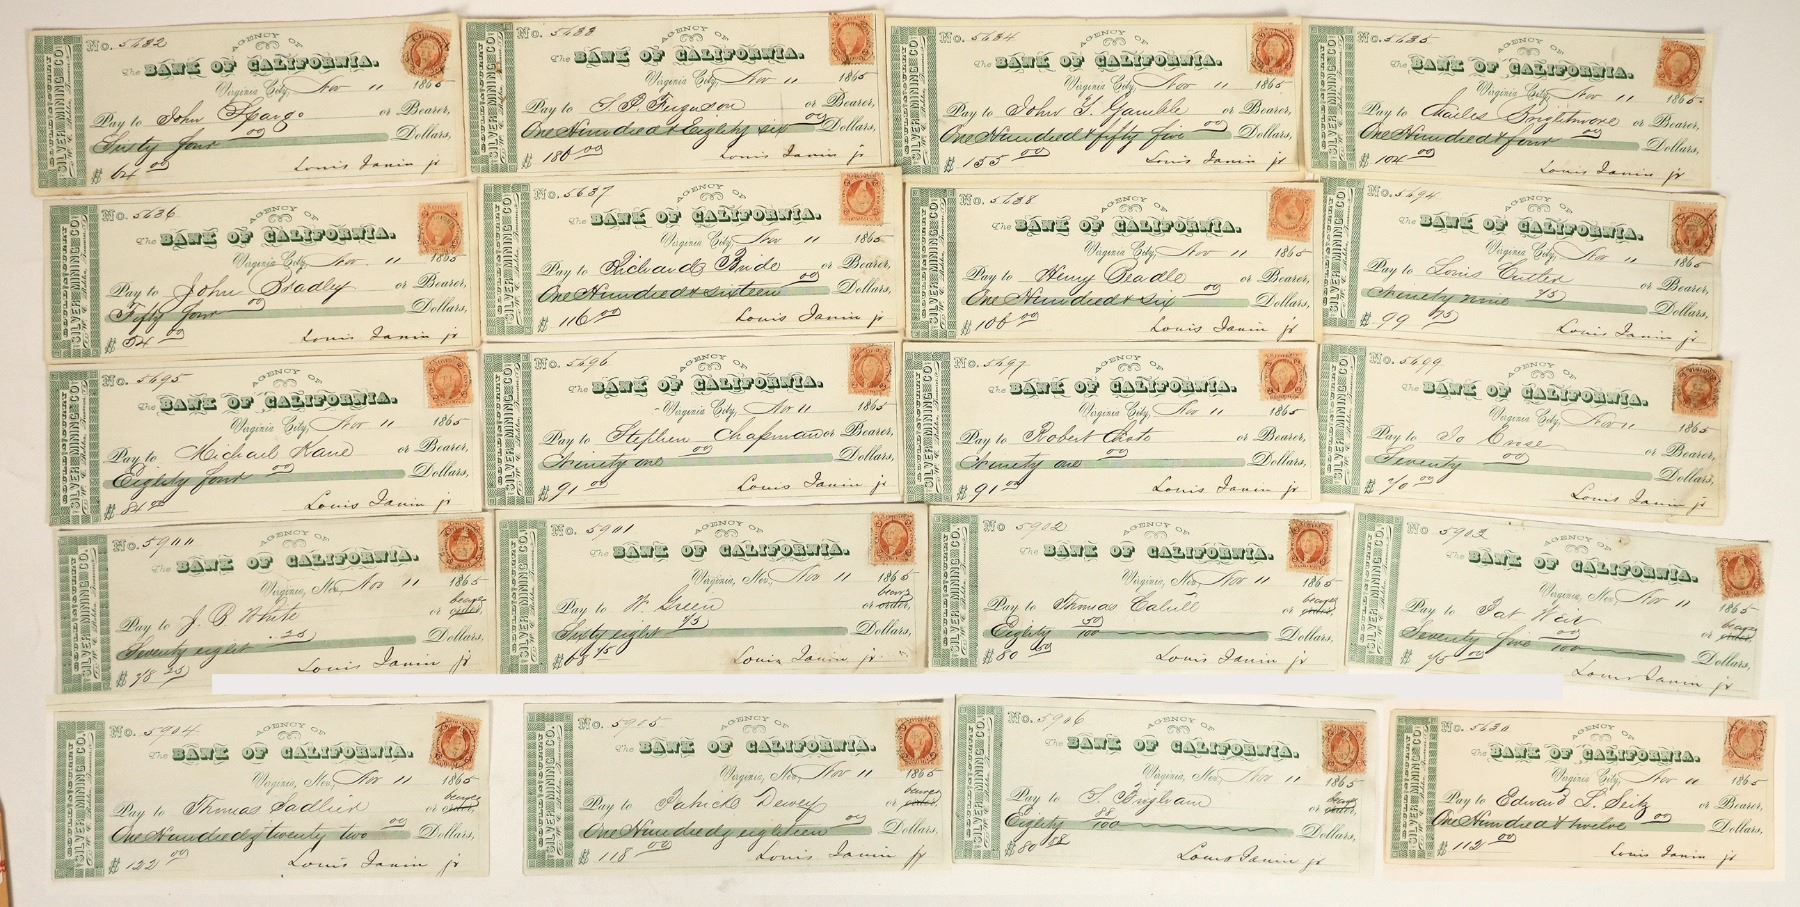 No. 5632
AGENCY OF
The BANK OF CALIFORNIA.
Virginia City, Nov 11 1865
Pay to John Hargo or Bearer,
Sixty four 00 Dollars,
$ 64 00
Louis Janin jr
SILVER MINING CO.
No. 5633
AGENCY OF
The BANK OF CALIFORNIA.
Virginia City, Nov 11 1865
Pay to S. P. Ferguson or Bearer,
One Hundred & Eighty six 00 Dollars,
$ 186 00
Louis Janin jr
SILVER MINING CO.
No. 5634
AGENCY OF
The BANK OF CALIFORNIA.
Virginia City, Nov 11 1865
Pay to John Y. Gamble or Bearer,
One Hundred & fifty five 00 Dollars,
$ 155 00
Louis Janin jr
SILVER MINING CO.
No. 5635
AGENCY OF
The BANK OF CALIFORNIA.
Virginia City, Nov 11 1865
Pay to Charles Brightmore or Bearer,
One Hundred & four 00 Dollars,
$ 104 00
Louis Janin jr
SILVER MINING CO.
No. 5636
AGENCY OF
The BANK OF CALIFORNIA.
Virginia City, Nov 11 1865
Pay to John Bradley or Bearer,
Fifty four 00 Dollars,
$ 54 00
Louis Janin jr
SILVER MINING CO.
No. 5637
AGENCY OF
The BANK OF CALIFORNIA.
Virginia City, Nov 11 1865
Pay to Richard Bride or Bearer,
One Hundred & sixteen 00 Dollars,
$ 116 00
Louis Janin jr
SILVER MINING CO.
No. 5638
AGENCY OF
The BANK OF CALIFORNIA.
Virginia City, Nov 11 1865
Pay to Henry Beadle or Bearer,
One Hundred & six 00 Dollars,
$ 106 00
Louis Janin jr
SILVER MINING CO.
No. 5694
AGENCY OF
The BANK OF CALIFORNIA.
Virginia City, Nov 11 1865
Pay to Louis Cutter or Bearer,
Ninety nine 75 Dollars,
$ 99 75
Louis Janin jr
SILVER MINING CO.
No. 5695
AGENCY OF
The BANK OF CALIFORNIA.
Virginia City, Nov 11 1865
Pay to Michael Kane or Bearer,
Eighty four 00 Dollars,
$ 84 00
Louis Janin jr
SILVER MINING CO.
No. 5696
AGENCY OF
The BANK OF CALIFORNIA.
Virginia City, Nov 11 1865
Pay to Stephen Chapman or Bearer,
Ninety one 00 Dollars,
$ 91 00
Louis Janin jr
SILVER MINING CO.
No. 5697
AGENCY OF
The BANK OF CALIFORNIA.
Virginia City, Nov 11 1865
Pay to Robert or Bearer,
Ninety one 00 Dollars,
$ 91 00
Louis Janin jr
SILVER MINING CO.
No. 5699
AGENCY OF
The BANK OF CALIFORNIA.
Virginia City, Nov 11 1865
Pay to Jo Cruse or Bearer,
Seventy 00 Dollars,
$ 70 00
Louis Janin jr
SILVER MINING CO.
No. 5900
AGENCY OF
The BANK OF CALIFORNIA.
Virginia, Nev, Nov 11 1865
bearer
Pay to J. B White or order,
Seventy eight 25 Dollars,
$ 78 25
Louis Janin jr
SILVER MINING CO.
No. 5901
AGENCY OF
The BANK OF CALIFORNIA.
Virginia, Nev, Nov 11 1865
bearer
Pay to W. Green or order,
Sixty eight 75 Dollars,
$ 68 75
Louis Janin jr
SILVER MINING CO.
No. 5902
AGENCY OF
The BANK OF CALIFORNIA.
Virginia, Nev, Nov 11 1865
bearer
Pay to Thomas Cahill or order,
Eighty 50/100 Dollars,
$ 80 50
Louis Janin jr
SILVER MINING CO.
No. 5903
AGENCY OF
The BANK OF CALIFORNIA.
Virginia, Nev, Nov 11 1865
bearer
Pay to Pat Weir or order,
Seventy five 00/100 Dollars,
$ 75 00
Louis Janin jr
SILVER MINING CO.
No. 5904
AGENCY OF
The BANK OF CALIFORNIA.
Virginia, Nev, Nov 11 1865
bearer
Pay to Thomas Sadlier or order,
One Hundred & twenty two 00 Dollars,
$ 122 00
Louis Janin jr
SILVER MINING CO.
No. 5905
AGENCY OF
The BANK OF CALIFORNIA.
Virginia, Nev, Nov 11 1865
bearer
Pay to Patrick Dewey or order,
One Hundred & eighteen 00 Dollars,
$ 118 00
Louis Janin jr
SILVER MINING CO.
No. 5906
AGENCY OF
The BANK OF CALIFORNIA.
Virginia, Nev, Nov 11 1865
bearer
Pay to S. Brigham or order,
Eighty 08/100 Dollars,
$ 80 08
Louis Janin jr
SILVER MINING CO.
No. 5630
AGENCY OF
The BANK OF CALIFORNIA.
Virginia City, Nov 11 1865
Pay to Edward L. Seitz or Bearer,
One Hundred & twelve 00 Dollars,
$ 112 00
Louis Janin jr
SILVER MINING CO.